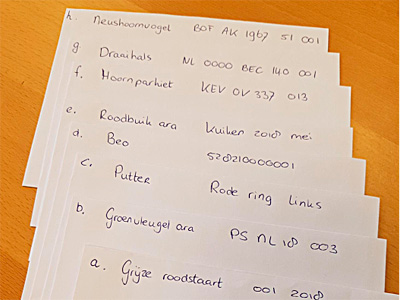 h. Neushoornvogel BOF AK 1967 51 001
g. Draaihals NL 0000 BEC 140 001
f. Hoornparkiet KEV OV 337 013
e. Roodbuik ara Kuiken 2018 mei
d. Beo 528210000001
c. Putter Rode ring links
b. Groenvleugel ara PS NL 18 003
a. Grijze roodstaart 001 2018